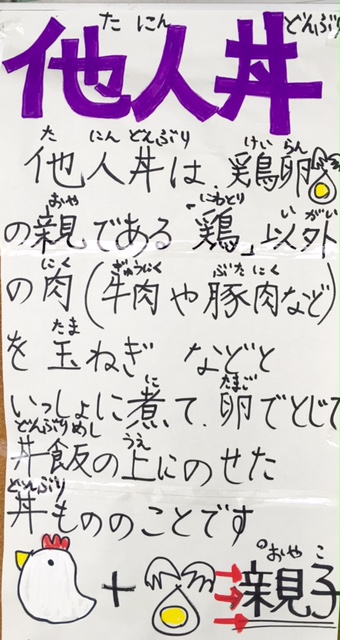 たにん どんぶり
他人丼
た にんどんぶり けいらん
他人丼は、鶏卵
おや にわとり いがい
の親である「鶏」以外
にく ぎゅうにく ぶたにく
の肉(牛肉や豚肉など)
たま
を玉ねぎ などと
に たまご
いっしょに煮て、卵でとじて
どんぶりめし うえ
丼飯の上にのせた
どんぶり
丼もののことです
おやこ
+ 親子